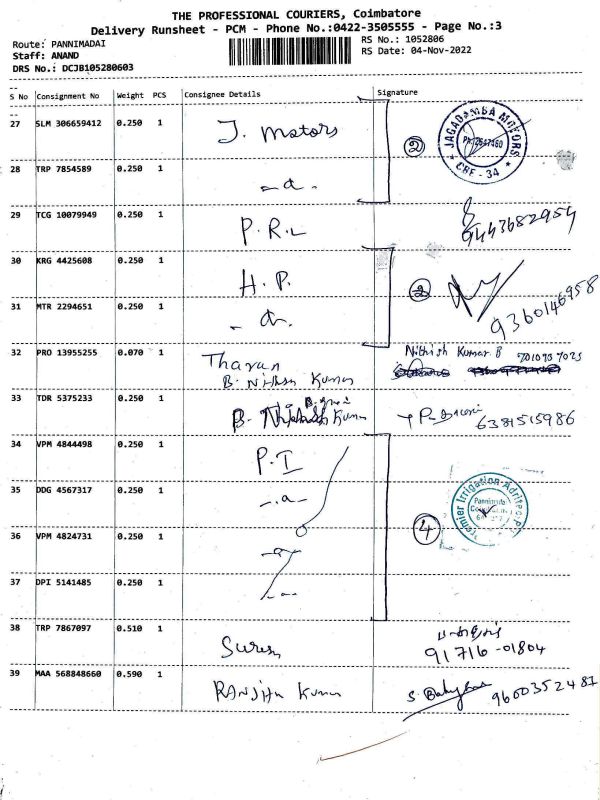 THE PROFESSIONAL COURIERS, Coimbatore
Delivery Runsheet - PCM - Phone No.:0422-3505555 - Page No.:3
Route: PANNIMADAI
Staff: ANAND
DRS No.: DCJB105280603
RS No.: 1052806
RS Date: 04-Nov-2022
S No Consignment No Weight PCS Consignee Details Signature
27 SLM 306659412 0.250 1 J. Motors 2
JAGADAMBA MOTORS
CBE - 34
28 TRP 7854589 0.250 1 -a-
29 TCG 10079949 0.250 1 P.R.L 9443682954
30 KRG 4425608 0.250 1 H.P. 2
31 MTR 2294651 0.250 1 -a- 9360146958
32 PRO 13955255 0.070 1 Tharun Nithish Kumar B 7010937023
B. Nithish Kumar
33 TDR 5375233 0.250 1 B. Kumar 6381515986
34 VPM 4844498 0.250 1 P.I
35 DDG 4567317 0.250 1 -a-
Premier Irrigation Adritec P
Pannimadai
36 VPM 4824731 0.250 1 -a- 4
37 DPI 5141485 0.250 1
38 TRP 7867097 0.510 1 Suresh
91716-01804
39 MAA 568848660 0.590 1 RANJith Kumar 9600352481